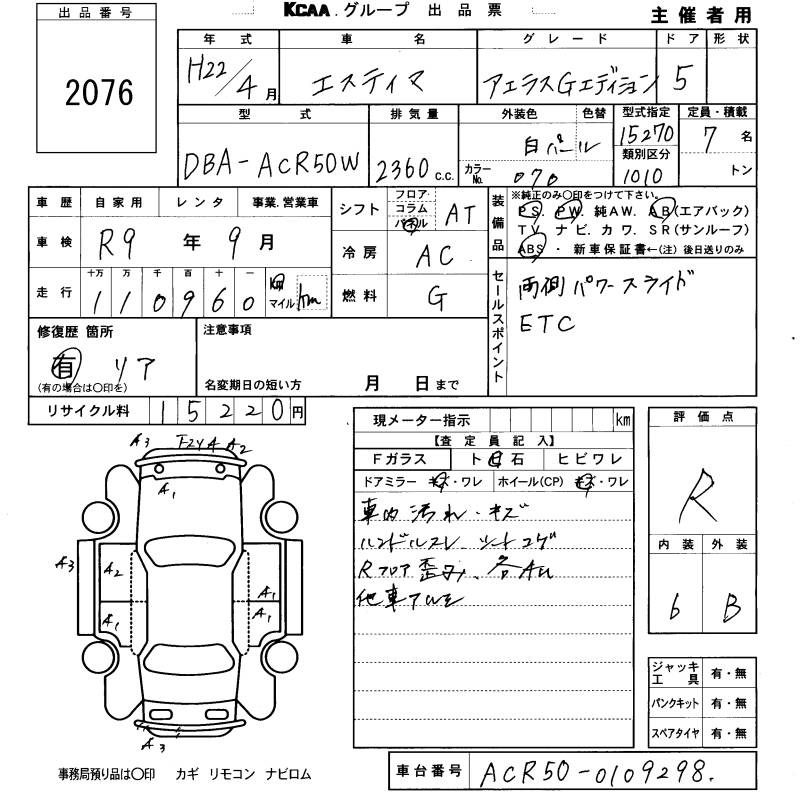 KCAA. グループ 出品票
主催者用
出品番号
2076
年式 車名 グレード ドア 形状
H22/4月 エスティマ アエラスGエディション 5
型式 排気量 外装色 色替 型式指定 定員・積載
DBA-ACR50W 2360 c.c. 白パール 15270 7名
カラーNo. 070 類別区分 1010 トン
車歴 自家用 レンタ 事業.営業車
車検 R9年 9月
走行 十万 万 千 百 十 一
110960 km マイル km
シフト フロア コラム パネル AT
冷房 AC
燃料 G
装備品
※純正のみ〇印をつけて下さい。
PS. PW. 純AW. AB(エアバック)
TV. ナビ. カワ. SR(サンルーフ)
ABS ・ 新車保証書←(注)後日送りのみ
セールスポイント
両側パワースライド
ETC
修復歴 箇所
有 リア
(有の場合は〇印を)
注意事項
名変期日の短い方 月 日まで
リサイクル料 15220円
現メーター指示 km
【査定員記入】
Fガラス ト石 ヒビワレ
ドアミラー キズ・ワレ ホイール(CP) キズ・ワレ
車内汚れ・キズ
ハンドルスレ シートコゲ
Rフロア歪み、各AU
他車アルミ
評価点
R
内装 外装
6 B
A3 A A2
A1
A3 A2 A1
A1 A1
A3
ジャッキ工具 有・無
パンクキット 有・無
スペアタイヤ 有・無
事務局預り品は〇印 カギ リモコン ナビロム
車台番号 ACR50-0109298.